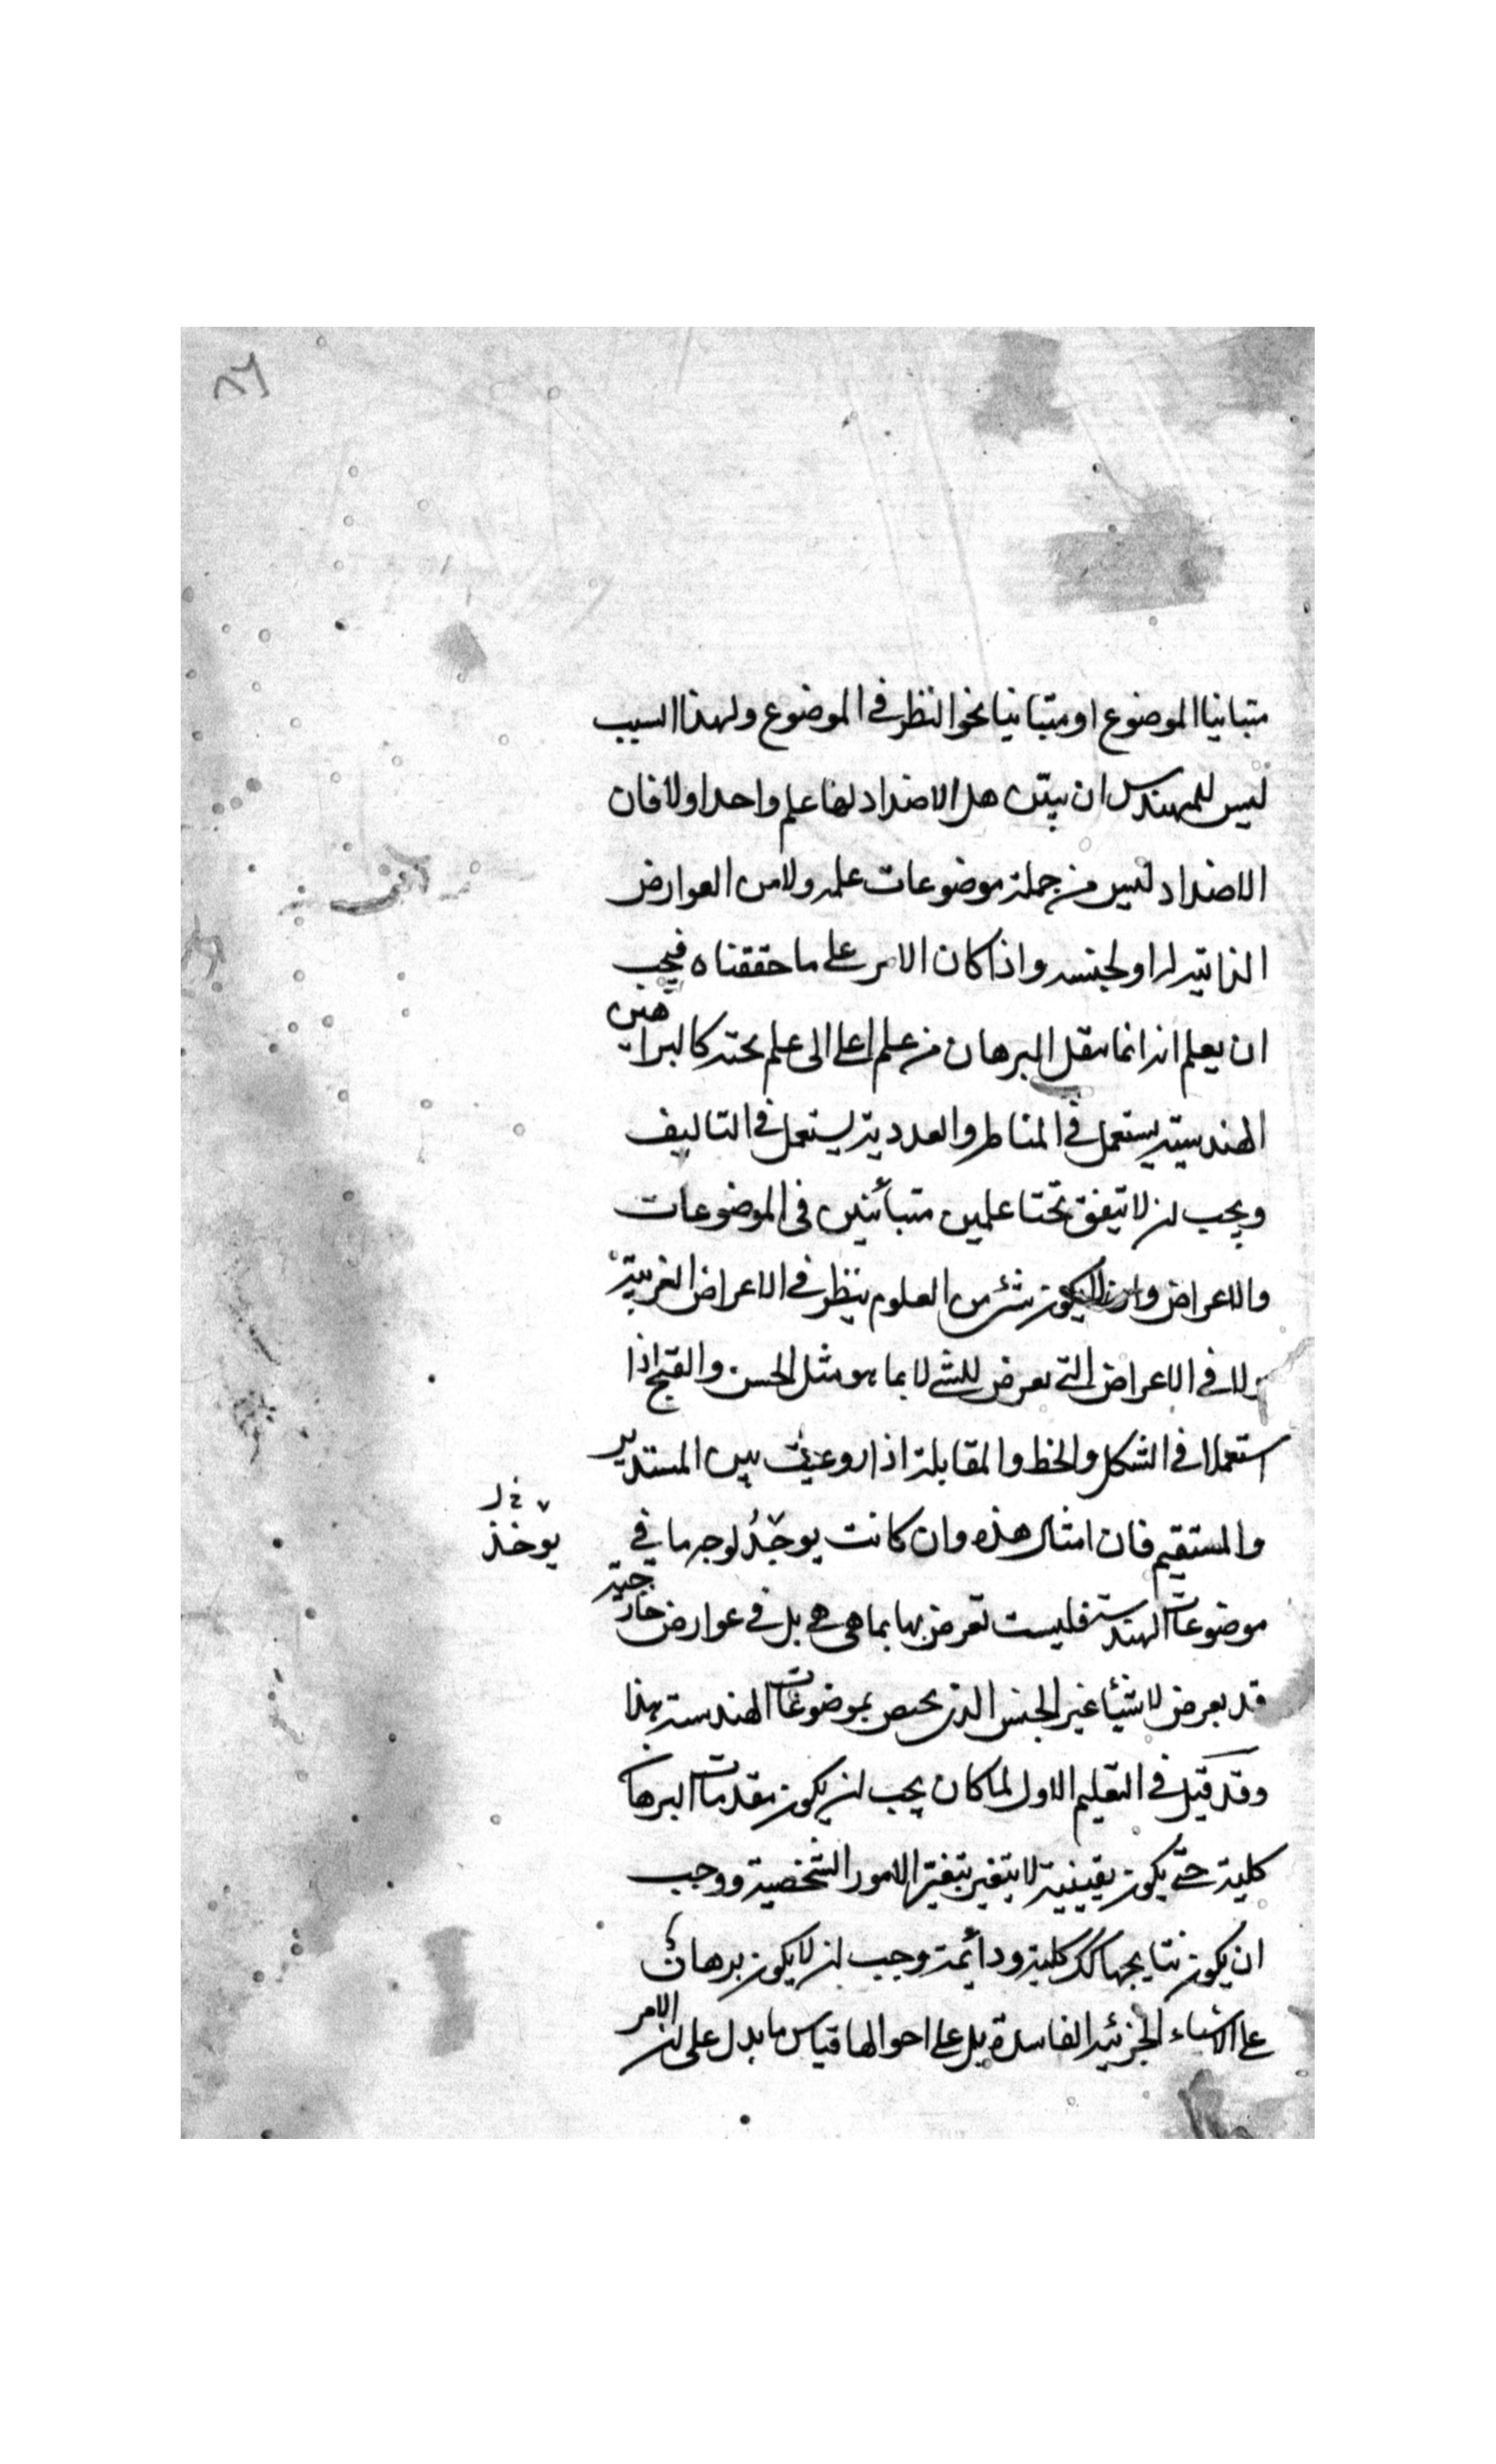 ٨٦
متباينا الموضوع او متباينا نحو النظر في الموضوع ولهذا السبب
ليس للمهندس ان يبين هل الاضداد لها علم واحد اولا فان
الاضداد ليس من جملة موضوعات علمه ولا من العوارض
الذاتية له او لجنسه واذا كان الامر على ما حققناه فيجب
ان يعلم انه انما ينقل البرهان من علم اعلى الى علم تحته كالبراهين
الهندسية يستعمل في المناظر والعددية يستعمل في التاليف
ويجب ان لا تيفق تحتا علمين متبائنين في الموضوعات
والاعراض وان لا يكون شئ من العلوم ينظر في الاعراض الغريبة
ولا في الاعراض التي تعرض للشئ لا بما هو مثل الحسن والقبح اذا
استعملا في الشكل والخط والمقابلة اذا روعيت بين المستدير
والمستقيم فان امثال هذه وان كانت يوجد لوجه ما في
يوخذ
موضوعات الهندسة فليست تعرض بها بما هي هي بل في عوارض خارجية
قد يعرض لاشيئا غير الجنس الذي يختص بموضوعات الهندسة هذا
وقد قيل في التعليم الاول لما كان يجب ان يكون مقدمات البرهان
كلية حتى يكون يقينية لا يتغير بتغير الامور الشخصية ووجب
ان يكون نتايجها كك كلية ودائمة وجب ان لا يكون برهان
على الاشياء الجزئية الفاسدة بل على احوالها قياس ما يدل على ان الامر